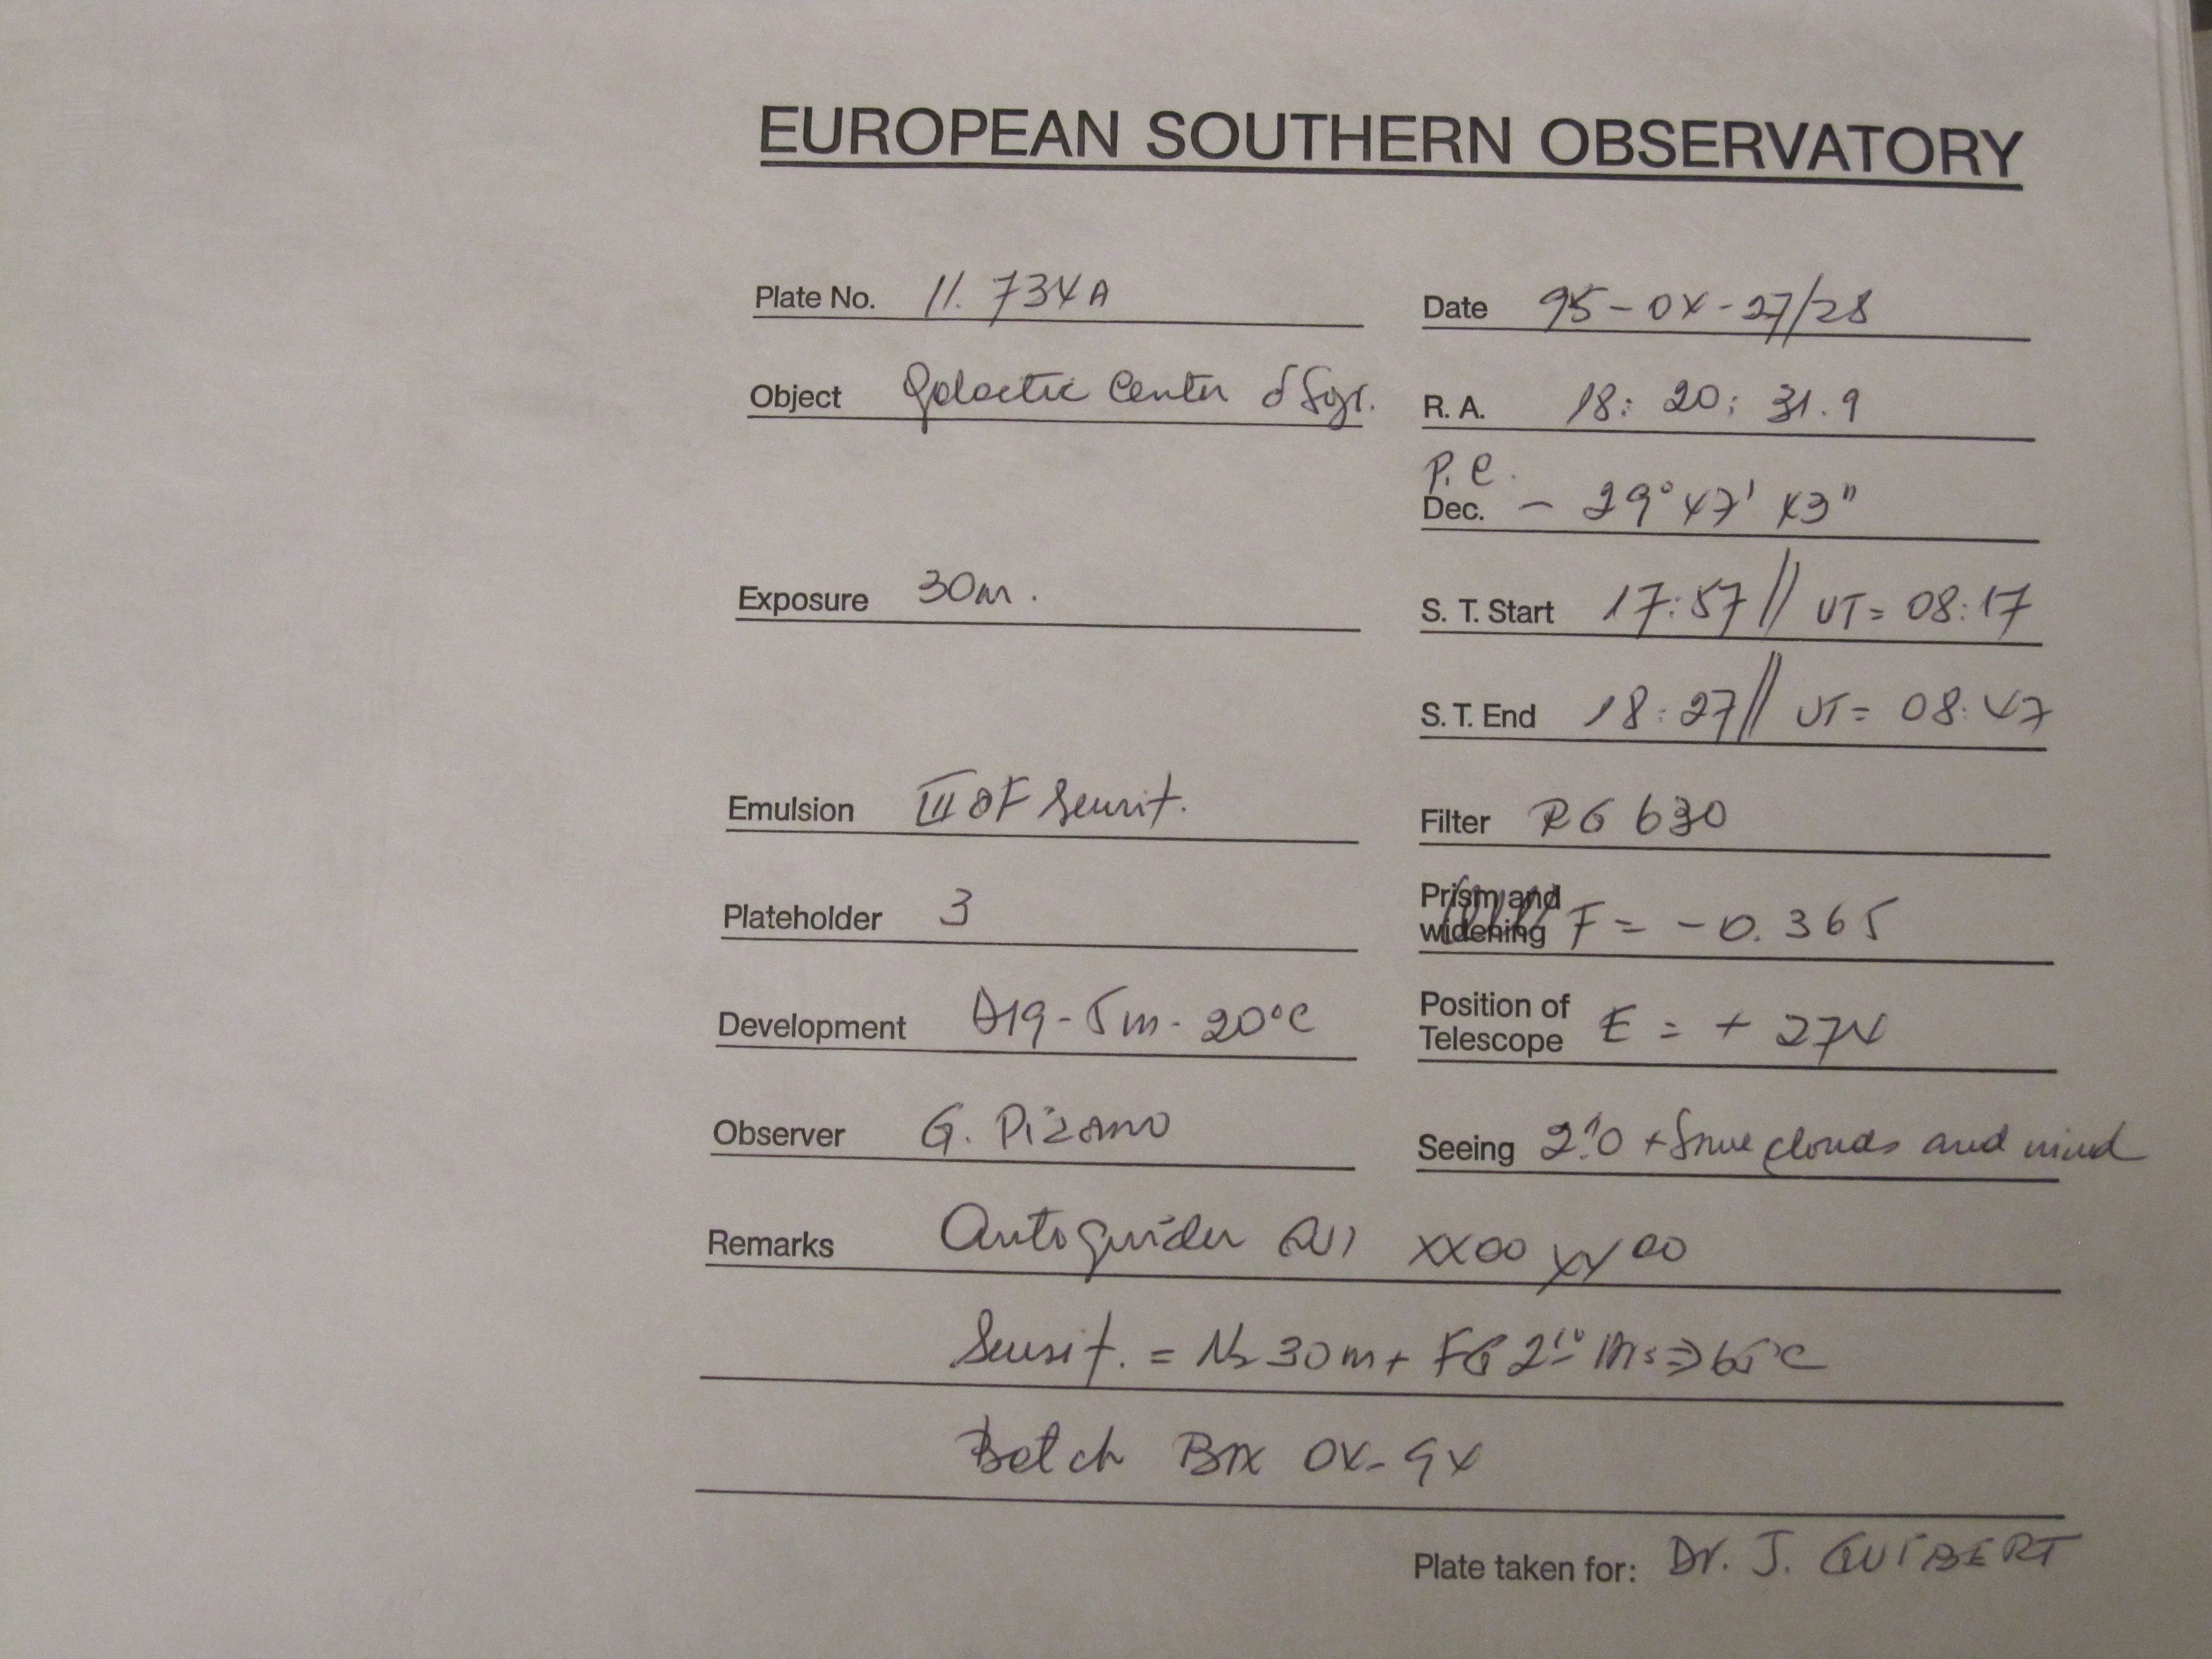 EUROPEAN SOUTHERN OBSERVATORY
Plate No. 11.734A
Date 95-04-27/28
Object Galactic Center δ Sgr.
R. A. 18: 20: 31.9
P.C.
Dec. - 29° 47' 43"
Exposure 30m.
S. T. Start 17:57 // UT= 08:17
S. T. End 18:27 // UT= 08:47
Emulsion IIIaF Sensit.
Filter RG 630
Plateholder 3
Prism and widening F = -0.365
Development D19-5m-20°C
Position of Telescope E = + 274
Observer G. Pizarro
Seeing 2".0 + Some clouds and wind
Remarks Autoguider XX00 YY00
Sensit. = N2 30m + FG 2 => 65°C
Batch Box 04-94
Plate taken for: Dr. J. GUIBERT